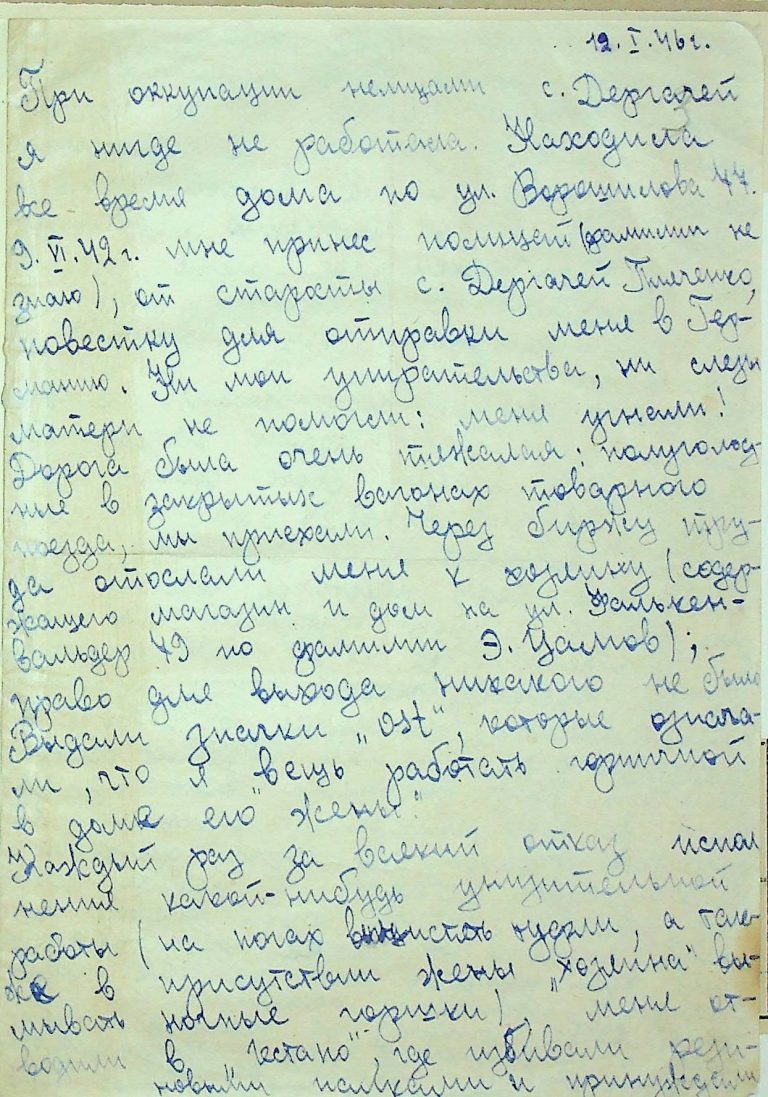 12.I.46г.
При оккупации немцами с. Дергачей
я нигде не работала. Находилась
все время дома по ул. Ворошилова 77.
9.VI.42г. мне принес полицай (фамилии не
знаю), от старосты с. Дергачей
повестку для отправки меня в Гер-
манию. Ни мои упирательства, ни слезы
матери не помогли: меня угнали!
Дорога была очень тяжелая: полуголод-
ные в закрытых вагонах товарного
поезда, мы приехали. Через биржу тру-
да отослали меня к хозяину (содер-
жащего магазин и дом на ул. Фалькен-
вальдер 49 по фамилии Э. Цамов);
право для выхода никакого не было
Выдали значки „Ost“, которые означа-
ли, что я "вещь работать горничной
в доме его жены."
Каждый раз за всякий отказ испол
нения какой-нибудь унизительной
работы (на ногах чистить нудли, а так-
же в присутствии жены „хозяина“ вы-
мывать ночные горшки), меня от-
водили в „гестапо“, где избивали рези-
новыми палками и принуждали